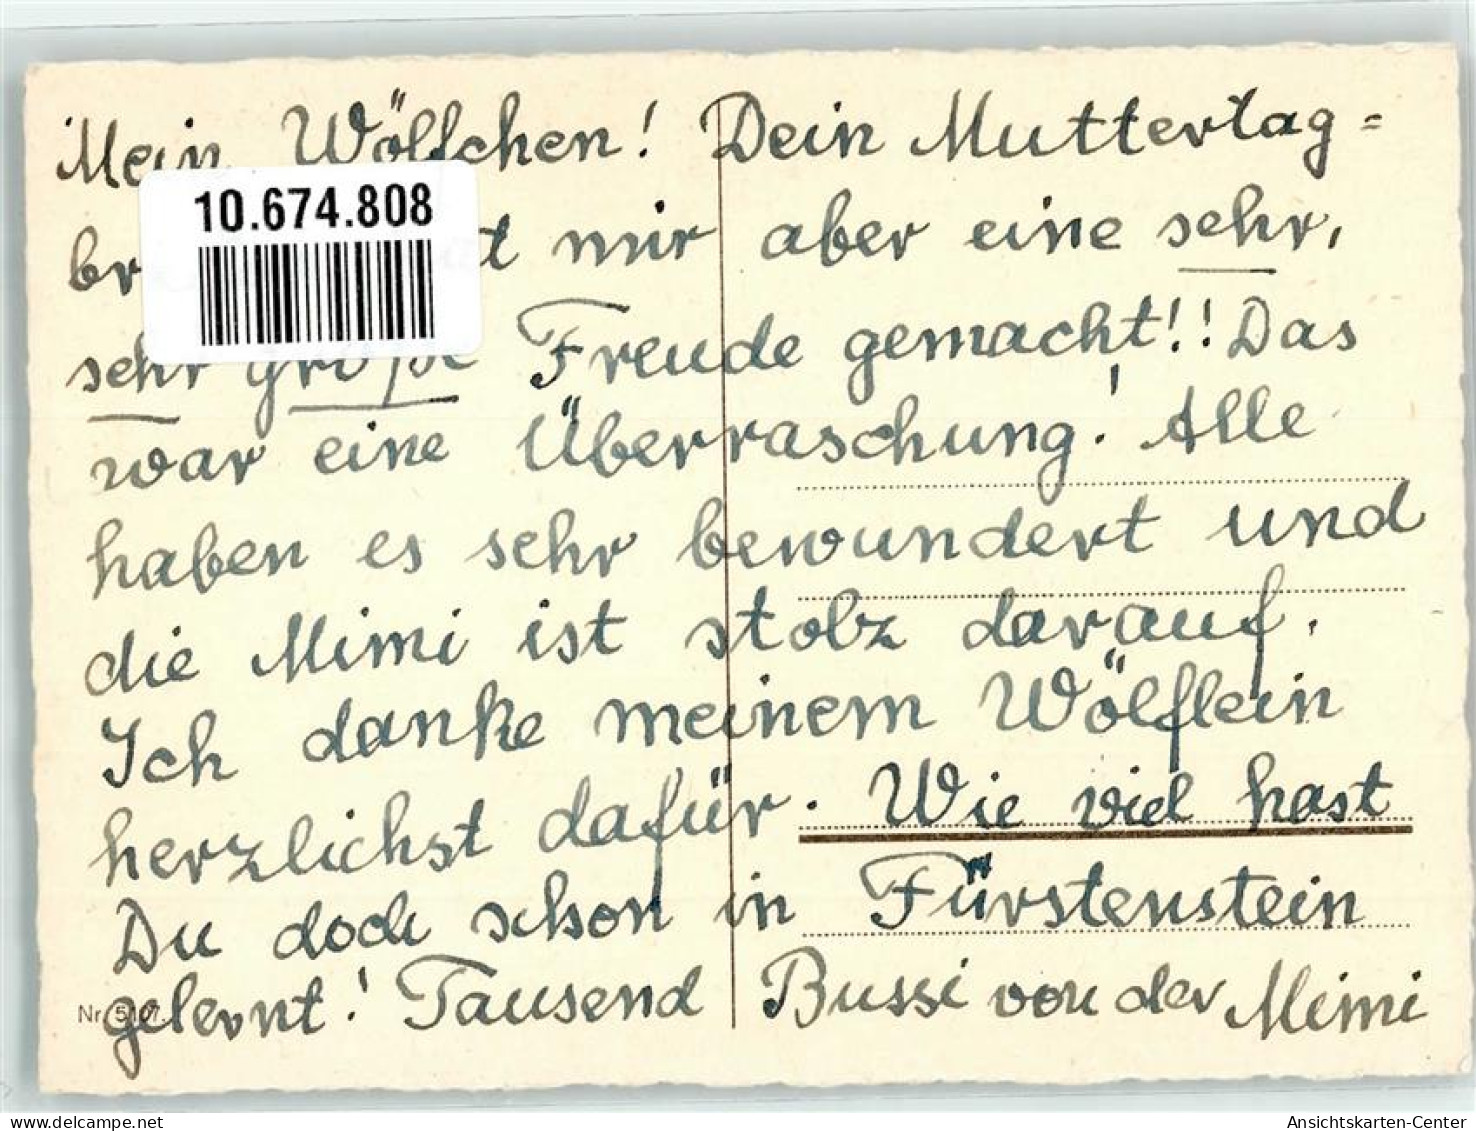 Mein Wölfchen! Dein Muttertag=
10.674.808
mir aber eine sehr,
sehr große Freude gemacht!! Das
war eine Überraschung! Alle
haben es sehr bewundert und
die Mimi ist stolz darauf.
Ich danke meinem Wölflein
herzlichst dafür. Wie viel hast
Du doch schon in Fürstenstein
gelernt! Tausend Bussi von der Mimi
Nr. 5107
oldthing.com
Ansichtskarten-Center